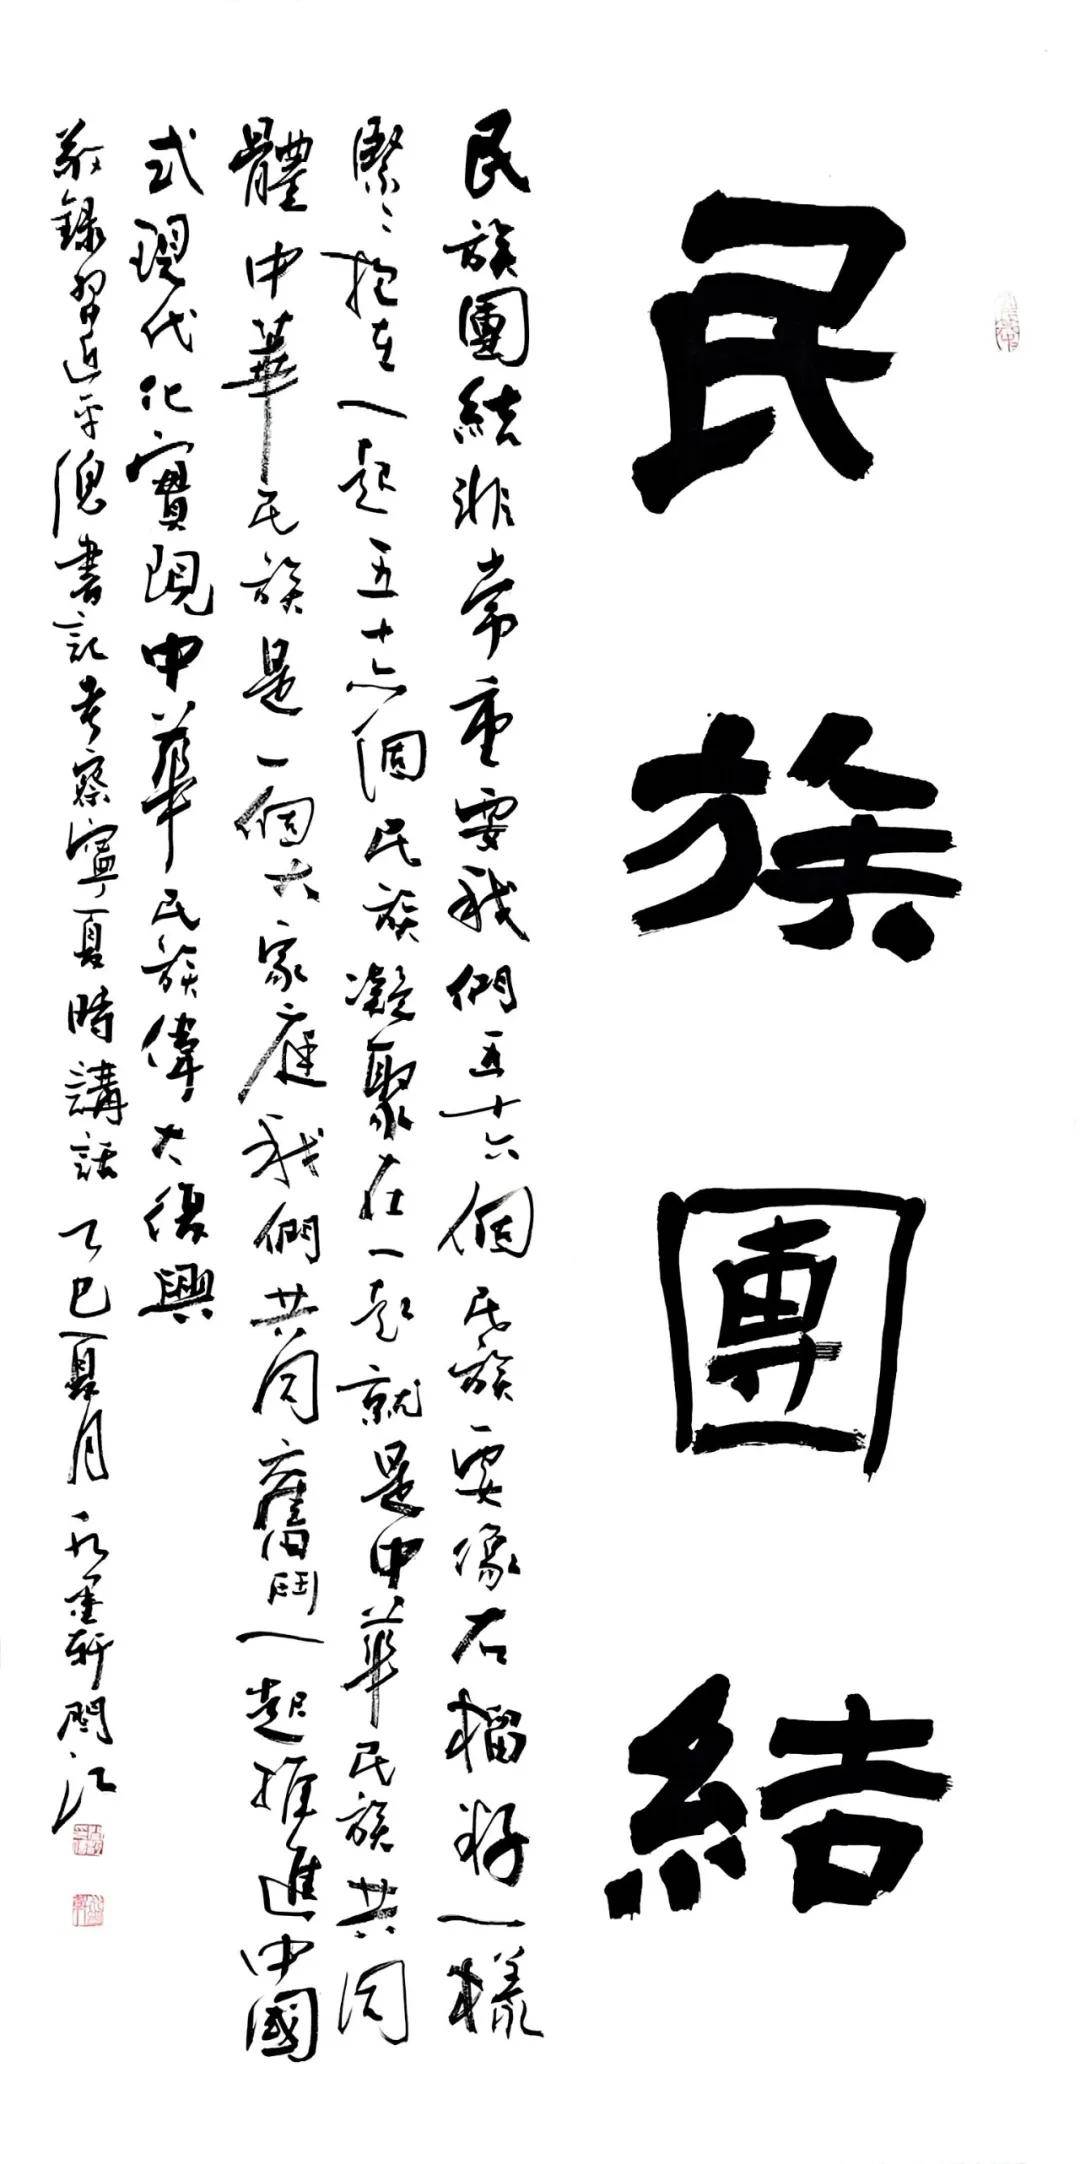 民族團結
民族團結非常重要我們五十六個民族要像石榴籽一樣
緊緊抱在一起五十六個民族凝聚在一起就是中華民族共同
體中華民族是一個大家庭我們共同奮鬥一起推進中國
式現代化實現中華民族偉大復興
敬録習近平總書記考察寧夏時講話 乙巳夏月 墨軒 江